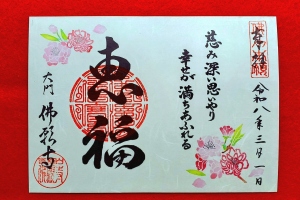 奉拝
令和八年三月一日
慈み深い思いやり
幸せが満ちあふれる
恵福
大門
佛願寺